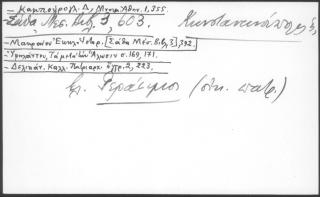 Καμπούρογλ. Δ, Μνημ. Αθην. 1, 355.
Σάθα Μεσ. Βιβ. 3, 603. Κωνσταντινουπόλεως
Μακραίου Εκκλ. Ιστορ. [Σάθα Μεσ. Βιβ. 3], 392.
Υψηλάντου, Τα μετά την Άλωσιν σ. 169, 171.
Δελικάν. Καλλ. Πατριαρχ. έγγρ. 2, 223.
Γεράσιμος (οικ. πατρ.)